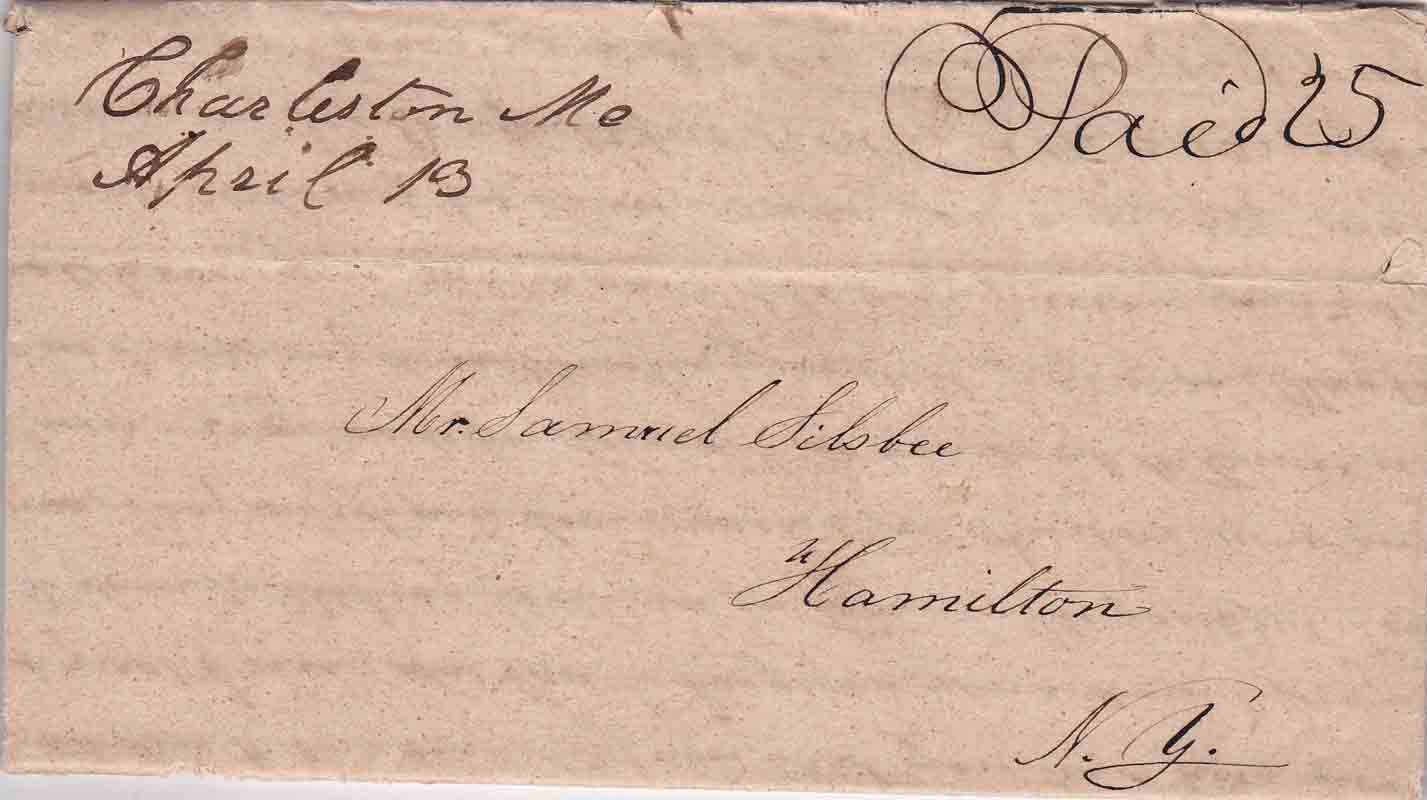 Charleston Me
April 13
Paid 25
Mr. Samuel Silsbee
Hamilton
N. Y.